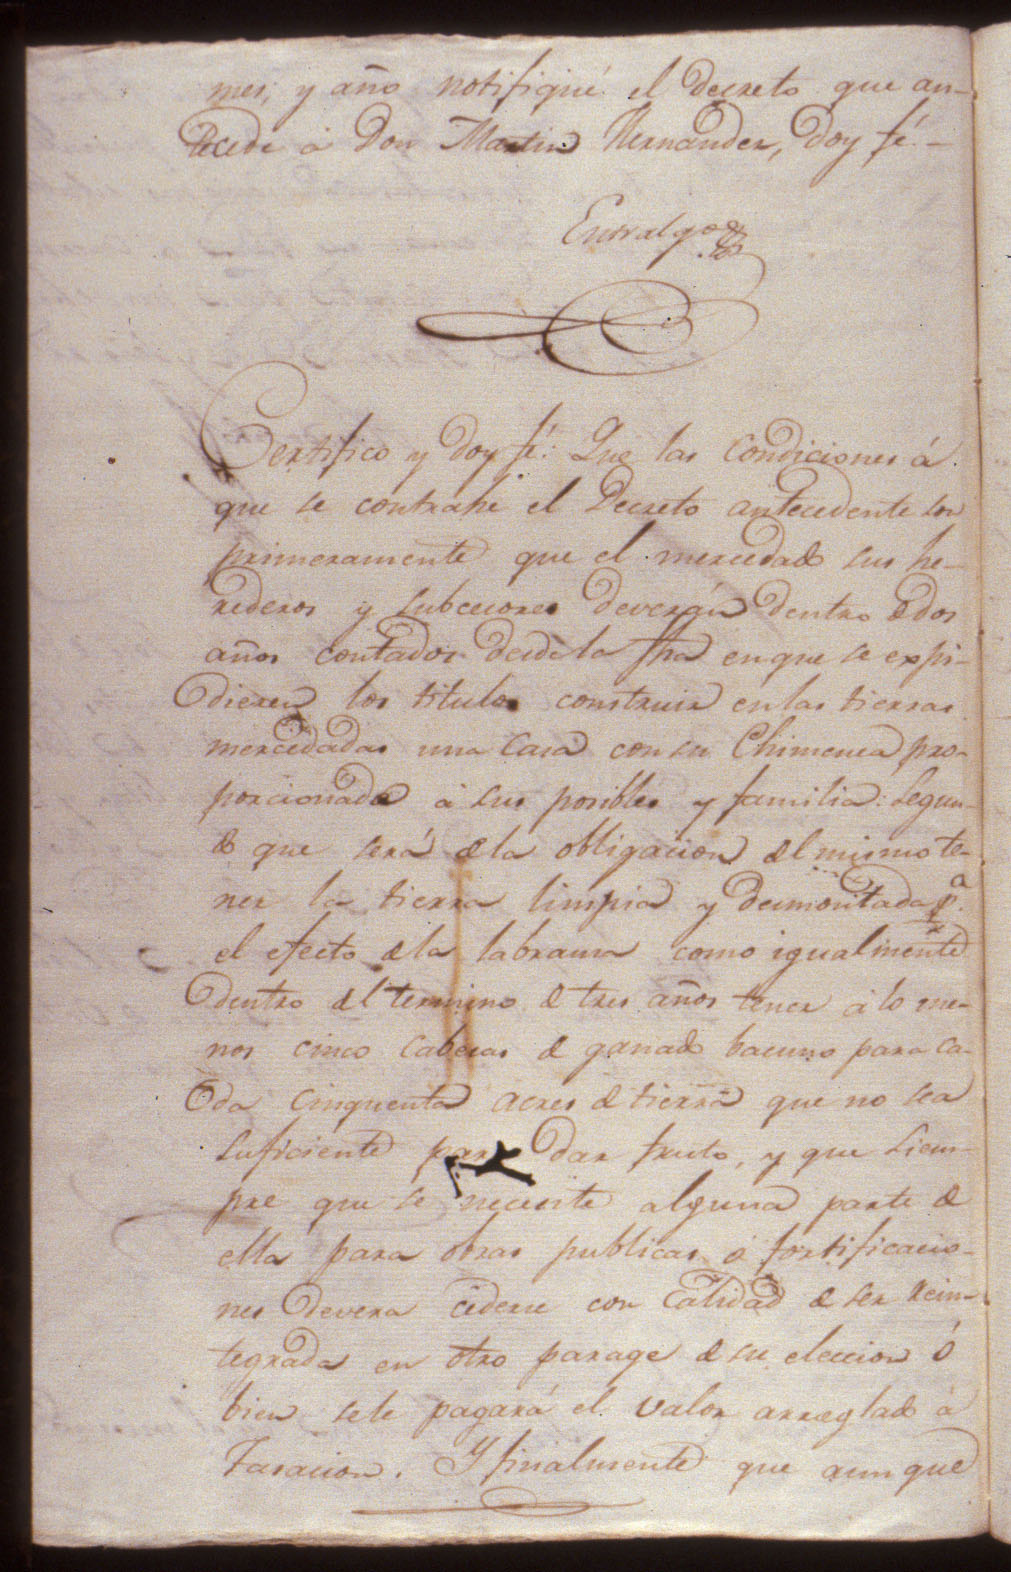 mes, y año notifiqué el decreto que an-
tecede á Don Martin Hernandez, doy fé.-
Entralgo
Certifico y doy fé: Que las condiciones á
que se contrahe el Decreto antecedente son
primeramente que el mercedado sus he-
rederos y subcesores deverán dentro de dos
años contados desde la fha en que se expi-
dieren los titulos construir en las tierras
mercedadas una Casa con su Chimenea pro-
porcionada á sus posibles y familia: Segun-
do que será de la obligacion del mismo te-
ner la tierra limpia y desmontada pa.
el efecto de la labransa como igualmente
dentro del termino de tres años tener á lo me-
nos cinco cabesas de ganado bacuno para ca-
da cinquenta acres de tierra que no sea
suficiente para dar fruto, y que siem-
pre que se necesite alguna parte de
ella para obras publicas ó fortificacio-
nes devera cederse con Calidad de ser Rein-
tegrada en otro parage de su eleccion ó
bien sele pagará el valor arreglado á
Tasacion. Y finalmente que aunque